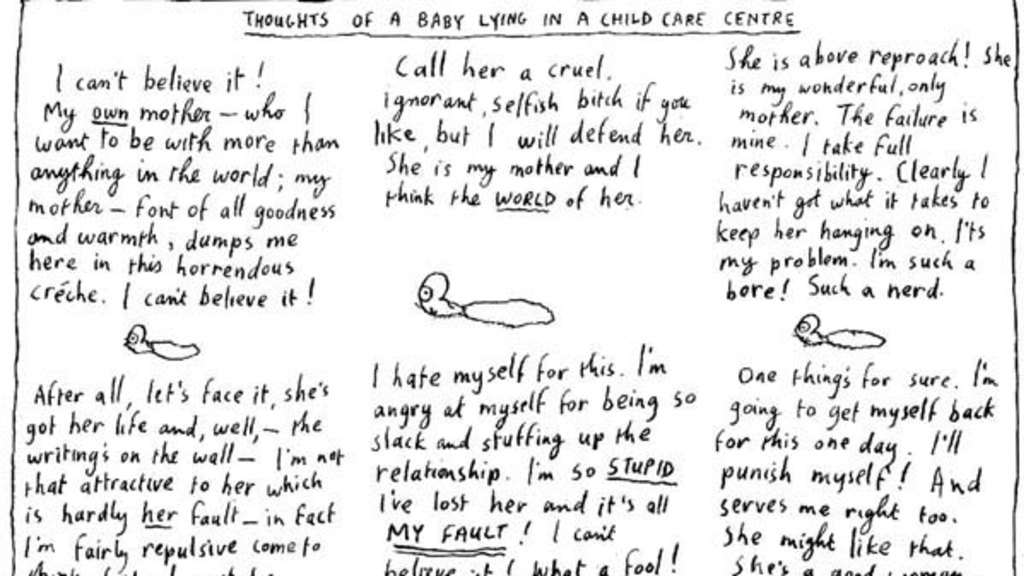 THOUGHTS OF A BABY LYING IN A CHILD CARE CENTRE
I can't believe it!
My own mother – who I
want to be with more than
anything in the world; my
mother – font of all goodness
and warmth, dumps me
here in this horrendous
créche. I can't believe it!
After all, let's face it, she's
got her life and, well, – the
writing's on the wall – I'm not
that attractive to her which
is hardly her fault – in fact
I'm fairly repulsive come to
Call her a cruel,
ignorant, selfish bitch if you
like, but I will defend her.
She is my mother and I
think the WORLD of her.
I hate myself for this. I'm
angry at myself for being so
slack and stuffing up the
relationship. I'm so STUPID
I've lost her and it's all
MY FAULT! I can't
believe it! What a fool!
She is above reproach! She
is my wonderful, only
mother. The failure is
mine. I take full
responsibility. Clearly I
haven't got what it takes to
keep her hanging on. I'ts
my problem. I'm such a
bore! Such a nerd.
One thing's for sure. I'm
going to get myself back
for this one day. I'll
punish myself! And
serves me right too.
She might like that.
She's a good